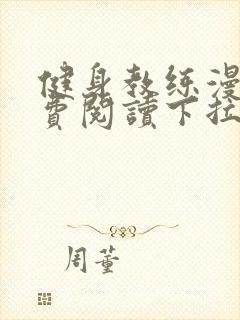 健身教练漫
費閱讀下拉
周董